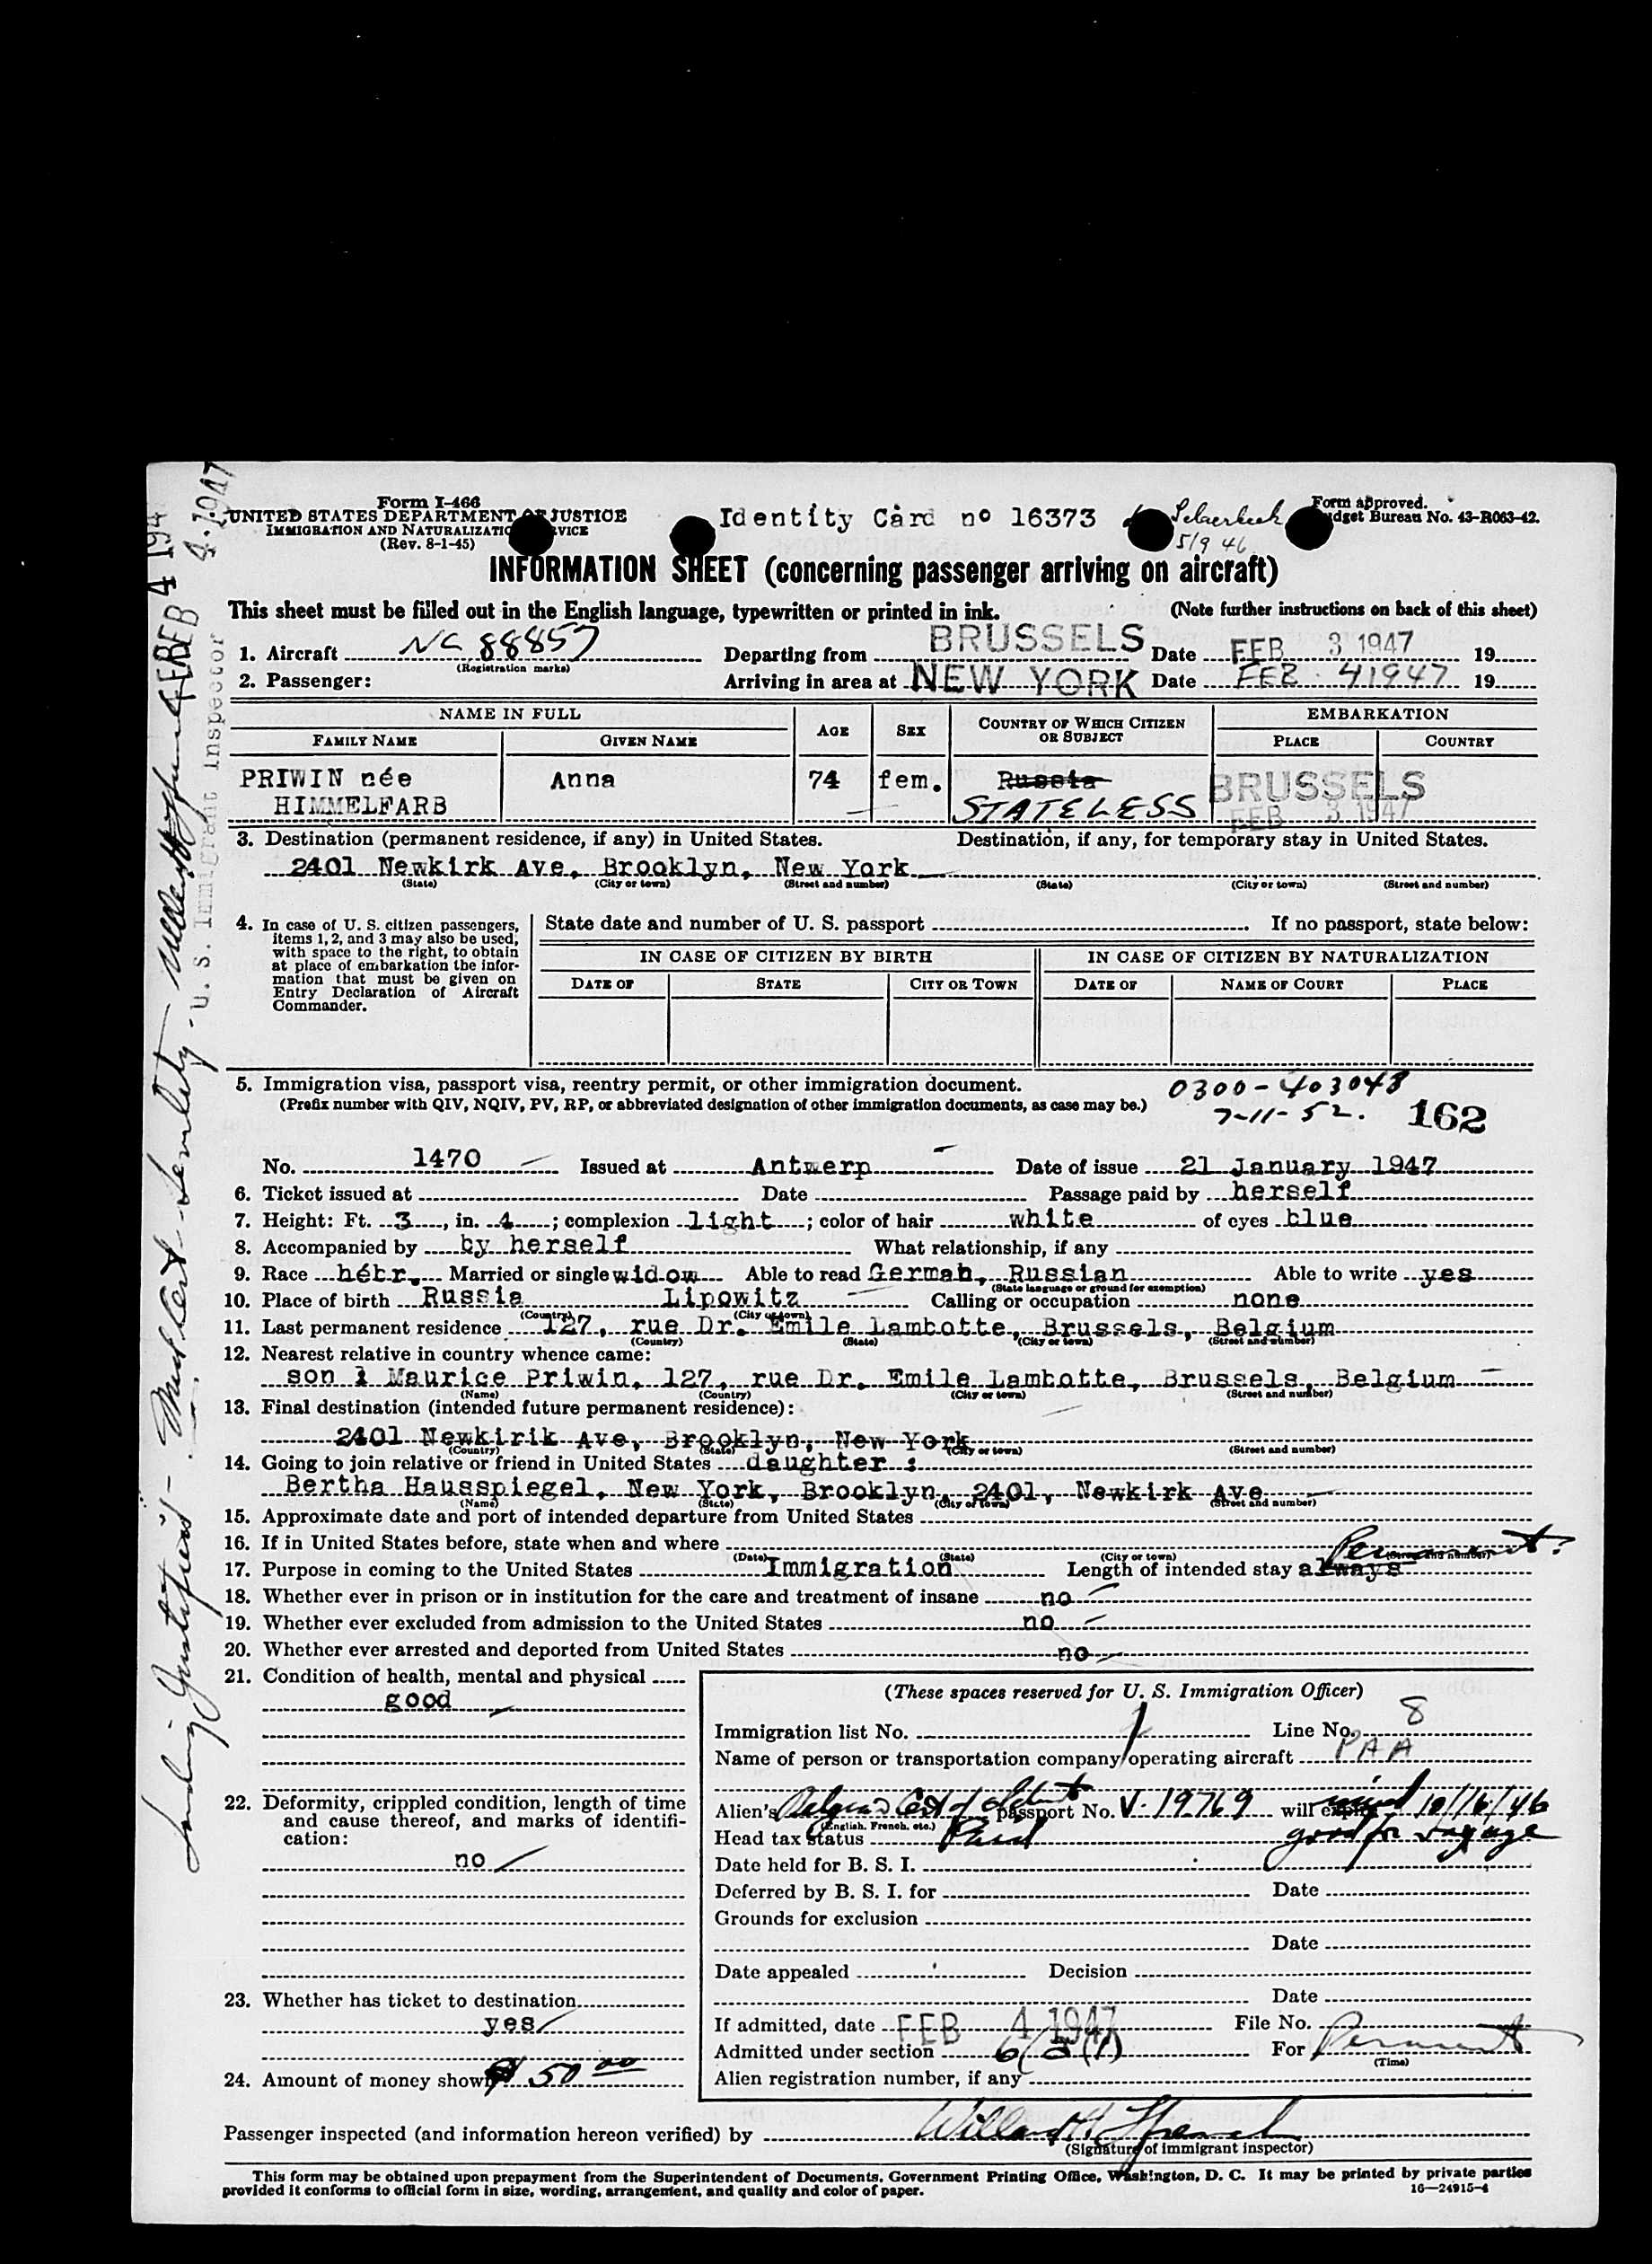 Form I-466
UNITED STATES DEPARTMENT OF JUSTICE
IMMIGRATION AND NATURALIZATIO VICE
(Rev. 8-1-45)
Identity Card nº 16373
5/9 46
Form approved.
udget Bureau No. 43-R063-42.
INFORMATION SHEET (concerning passenger arriving on aircraft)
This sheet must be filled out in the English language, typewritten or printed in ink. (Note further instructions on back of this sheet)
1. Aircraft NC 88857 Departing from BRUSSELS Date FEB 3 1947 19
(Registration marks)
2. Passenger: Arriving in area at NEW YORK Date FEB 4 1947 19
NAME IN FULL AGE SEX COUNTRY OF WHICH CITIZEN OR SUBJECT EMBARKATION
FAMILY NAME GIVEN NAME PLACE COUNTRY
PRIWIN née Anna 74 fem. Russia BRUSSELS
HIMMELFARB STATELESS FEB 3 1947
3. Destination (permanent residence, if any) in United States. Destination, if any, for temporary stay in United States.
2401 Newkirk Ave, Brooklyn, New York
(State) (City or town) (Street and number) (State) (City or town) (Street and number)
4. In case of U. S. citizen passengers,
items 1, 2, and 3 may also be used,
with space to the right, to obtain
at place of embarkation the infor-
mation that must be given on
Entry Declaration of Aircraft
Commander.
State date and number of U. S. passport If no passport, state below:
IN CASE OF CITIZEN BY BIRTH IN CASE OF CITIZEN BY NATURALIZATION
DATE OF STATE CITY OR TOWN DATE OF NAME OF COURT PLACE
5. Immigration visa, passport visa, reentry permit, or other immigration document.
(Prefix number with QIV, NQIV, PV, RP, or abbreviated designation of other immigration documents, as case may be.)
0300-403048
7-11-52. 162
No. 1470 Issued at Antwerp Date of issue 21 January 1947
6. Ticket issued at Date Passage paid by herself
7. Height: Ft. 3, in. 4; complexion light; color of hair white of eyes blue
8. Accompanied by by herself What relationship, if any
9. Race hébr. Married or single widow Able to read German, Russian Able to write yes
(State language or ground for exemption)
10. Place of birth Russia Lipowitz Calling or occupation none
(Country) (City or town)
11. Last permanent residence 127, rue Dr. Emile Lambotte, Brussels, Belgium
(Country) (State) (City or town) (Street and number)
12. Nearest relative in country whence came:
son : Maurice Priwin, 127, rue Dr. Emile Lambotte, Brussels, Belgium
(Name) (Country) (City or town) (Street and number)
13. Final destination (intended future permanent residence):
2401 Newkirik Ave, Brooklyn, New York
(Country) (State) (City or town) (Street and number)
14. Going to join relative or friend in United States daughter :
Bertha Hausspiegel, New York, Brooklyn, 2401, Newkirk Ave
(Name) (State) (City or town) (Street and number)
15. Approximate date and port of intended departure from United States
16. If in United States before, state when and where
(Date) (State) (City or town) (Street and number)
Permanent
17. Purpose in coming to the United States Immigration Length of intended stay always
18. Whether ever in prison or in institution for the care and treatment of insane no
19. Whether ever excluded from admission to the United States no
20. Whether ever arrested and deported from United States no
21. Condition of health, mental and physical
good
22. Deformity, crippled condition, length of time
and cause thereof, and marks of identifi-
cation:
no
23. Whether has ticket to destination
yes
24. Amount of money shown $ 50 00
(These spaces reserved for U. S. Immigration Officer)
Immigration list No. 1 Line No. 8
Name of person or transportation company operating aircraft PAA
Alien's passport No. V-19769 will expire 10/16/46
(English, French, etc.)
Head tax status Paid good for voyage
Date held for B. S. I.
Deferred by B. S. I. for Date
Grounds for exclusion
Date
Date appealed Decision
Date
If admitted, date FEB 4 1947 File No.
Admitted under section For Permanent
(Time)
Alien registration number, if any
Passenger inspected (and information hereon verified) by
(Signature of immigrant inspector)
This form may be obtained upon prepayment from the Superintendent of Documents, Government Printing Office, Washington, D. C. It may be printed by private parties
provided it conforms to official form in size, wording, arrangement, and quality and color of paper. 16—24915-4
U. S. Immigrant Inspector